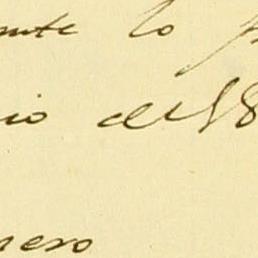 ente lo
io de 18
nero